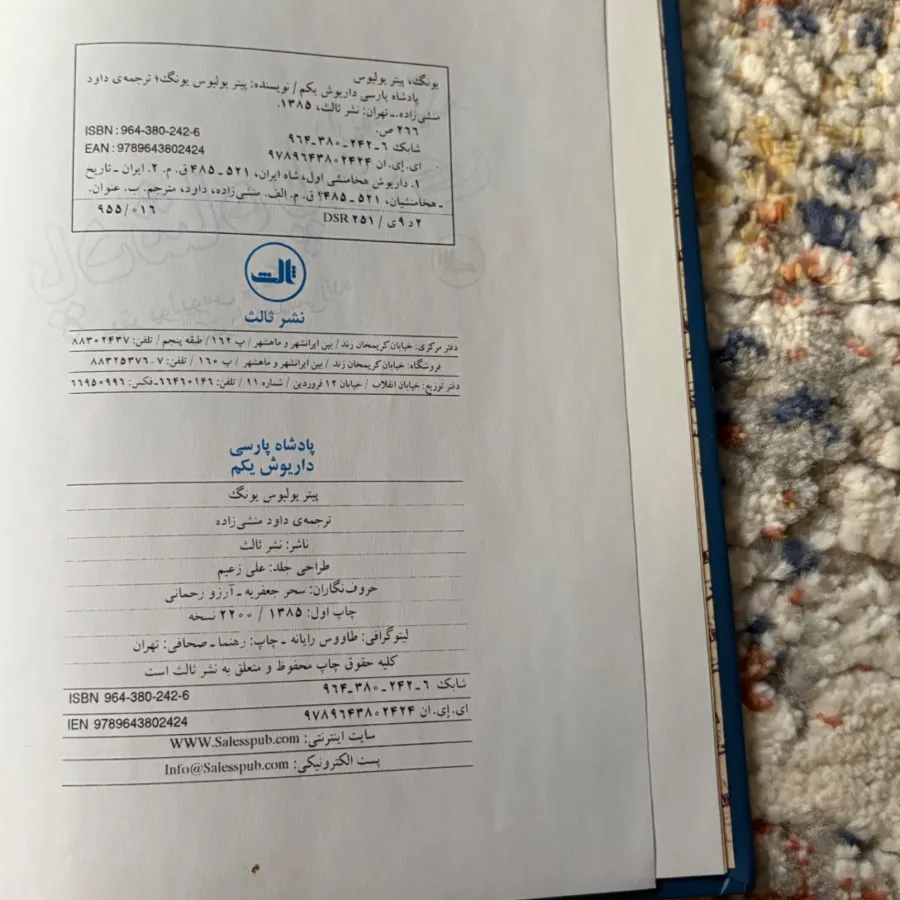 یونگ، پیتر یولیوس
پادشاه پارسی داریوش یکم / نویسنده: پیتر یولیوس یونگ؛ ترجمه‌ی داود
منشی‌زاده. ـ تهران: نشر ثالث، ۱۳۸۵.
۲۶۶ ص.
ISBN : 964-380-242-6 شابک ۶ـ۲۴۲ـ۳۸۰ـ۹۶۴
EAN : 9789643802424 ای.ای.ان ۹۷۸۹۶۴۳۸۰۲۴۲۴
۱. داریوش هخامنشی اول، شاه ایران، ۵۲۱ ـ ۴۸۵ ق. م. ۲. ایران ـ تاریخ
ـ هخامنشیان، ۵۲۱ ـ ۴۸۵؟ ق.م. الف. منشی‌زاده، داود، مترجم. ب. عنوان.
۲ د ۹ ی / DSR ۲۵۱ ۹۵۵/۰۱۶
ثالث
نشر ثالث
دفتر مرکزی: خیابان کریمخان زند / بین ایرانشهر و ماهشهر / پ ۱۶۲ / طبقه پنجم / تلفن: ۸۸۳۰۲۴۳۷
فروشگاه: خیابان کریمخان زند / بین ایرانشهر و ماهشهر / پ ۱۶۰ / تلفن: ۷ـ۸۸۳۲۵۳۷۶
دفتر توزیع: خیابان انقلاب / خیابان ۱۲ فروردین / شماره ۱۱ / تلفن: ۶۶۴۶۰۱۴۶ـ فکس: ۶۶۹۵۰۹۹۶
پادشاه پارسی
داریوش یکم
پیتر یولیوس یونگ
ترجمه‌ی داود منشی‌زاده
ناشر: نشر ثالث
طراحی جلد: علی زعیم
حروف‌نگاران: سحر جعفریه ـ آرزو رحمانی
چاپ اول: ۱۳۸۵ / ۲۲۰۰ نسخه
لیتوگرافی: طاووس رایانه ـ چاپ: رهنما ـ صحافی: تهران
کلیه حقوق چاپ محفوظ و متعلق به نشر ثالث است
ISBN 964-380-242-6 شابک ۶ـ۲۴۲ـ۳۸۰ـ۹۶۴
IEN 9789643802424 ای.ای.ان ۹۷۸۹۶۴۳۸۰۲۴۲۴
سایت اینترنتی: WWW.Salesspub.com
پست الکترونیکی: Info@Salesspub.com